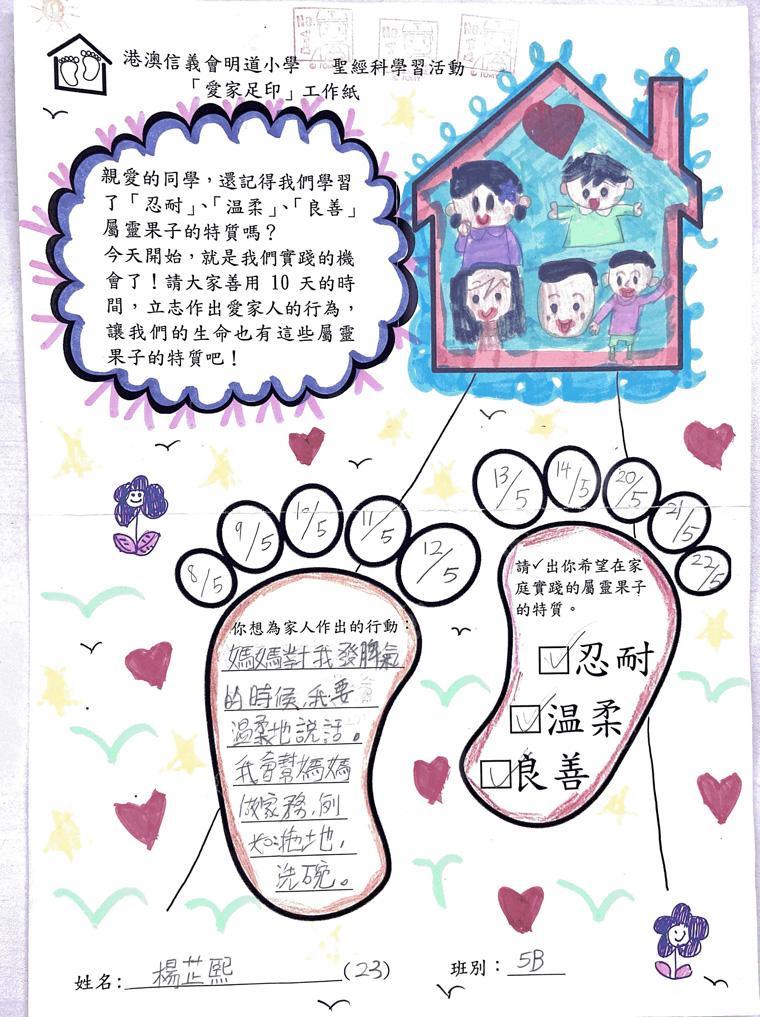 港澳信義會明道小學 聖經科學習活動
「愛家足印」工作紙
親愛的同學，還記得我們學習
了「忍耐」、「溫柔」、「良善」
屬靈果子的特質嗎？
今天開始，就是我們實踐的機
會了！請大家善用 10 天的時
間，立志作出愛家人的行為，
讓我們的生命也有這些屬靈
果子的特質吧！
8/5
9/5
10/5
11/5
12/5
13/5
14/5
20/5
21/5
22/5
你想為家人作出的行動：
媽媽對我發脾氣
的時候，我要
溫柔地說話。
我會幫媽媽
做家務，例
如拖地，
洗碗。
請✓出你希望在家
庭實踐的屬靈果子
的特質。
☑忍耐
☑溫柔
☑良善
姓名：楊芷熙(23) 班別：5B